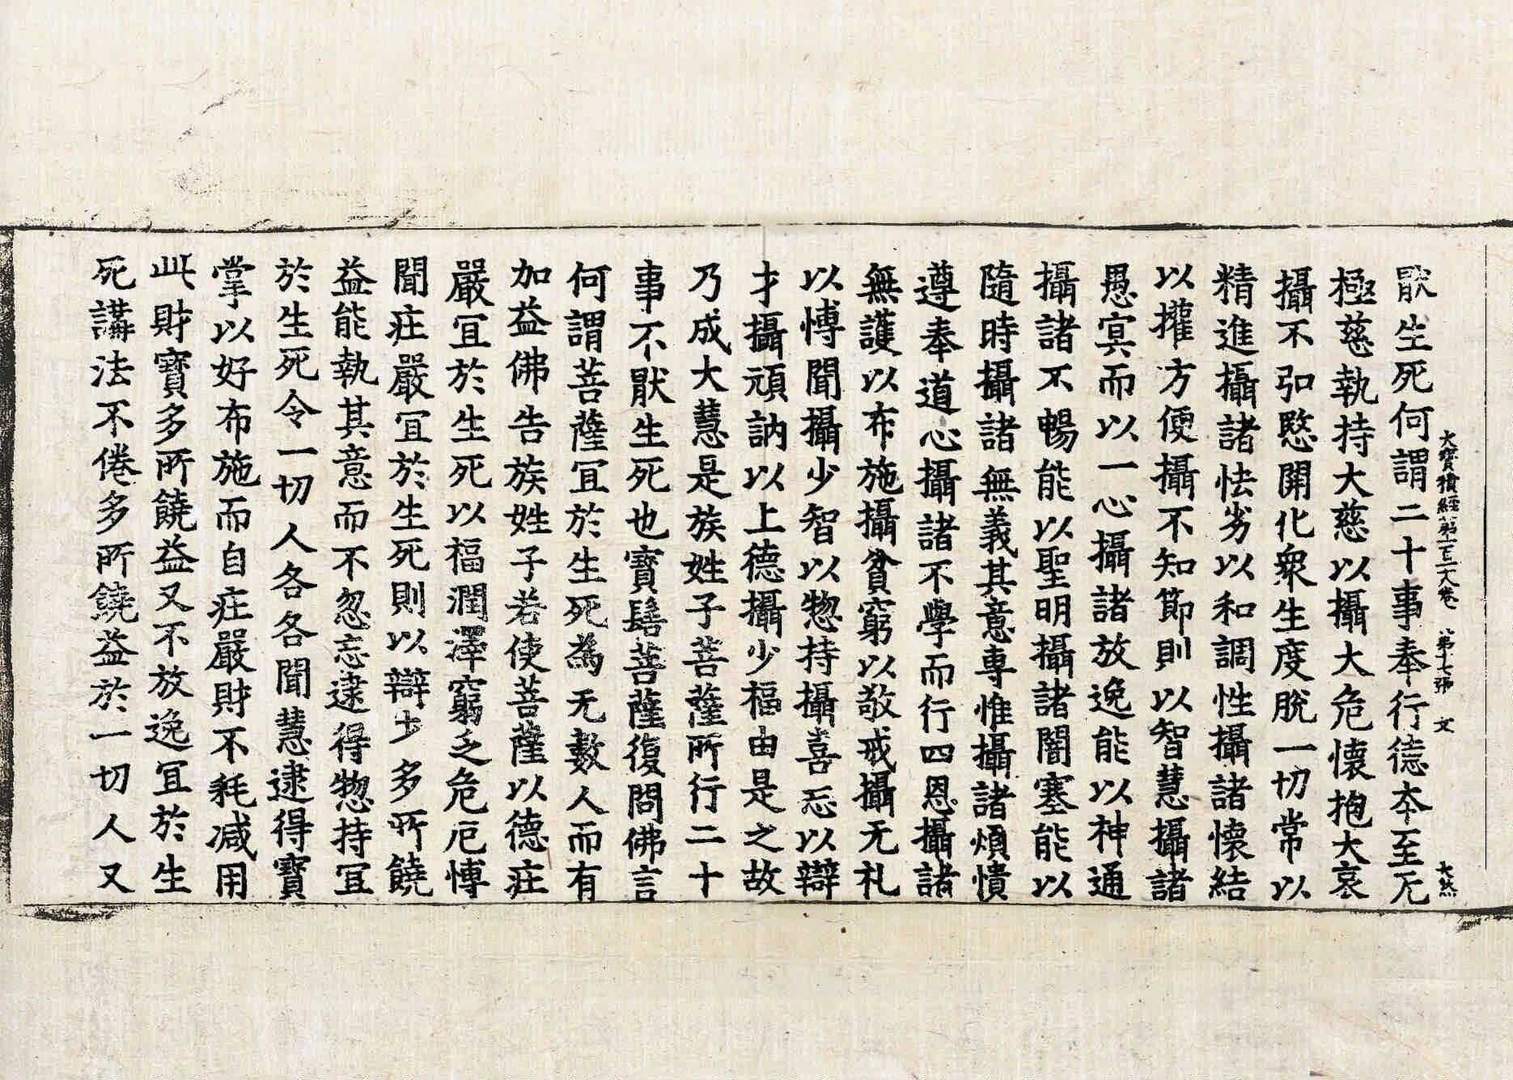 大寶積經第一百一十八卷　第十七張　文　大然
猒生死何謂二十事奉行德夲至无
極慈執持大慈以攝大危懷抱大哀
攝不弘慜開化衆生度脫一切常以
精進攝諸怯劣以和調性攝諸懷結
以攉方便攝不知節則以智慧攝諸
愚冥而以一心攝諸放逸能以神通
攝諸不暢能以聖明攝諸闇塞能以
隨時攝諸無義其意專惟攝諸煩憒
遵奉道心攝諸不學而行四恩攝諸
無護以布施攝貧窮以敬戒攝无礼
以愽聞攝少智以惣持攝喜忘以辯
才攝頑訥以上德攝少福由是之故
乃成大慧是族姓子菩薩所行二十
事不猒生死也寶髻菩薩復問佛言
何謂菩薩冝於生死為无數人而有
加益佛告族姓子若使菩薩以德莊
嚴冝於生死以福潤澤窮乏危厄愽
聞莊嚴冝於生死則以辯才多所饒
益能執其意而不忽忘逮得惣持冝
於生死令一切人各各聞慧逮得寶
掌以好布施而自莊嚴財不耗減用
此財寶多所饒益又不放逸冝於生
死講法不倦多所饒益於一切人又